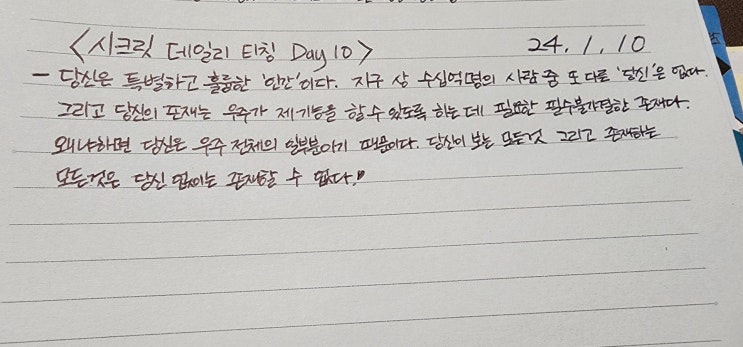 <시크릿 데일리 티칭 Day 10> 24. 1. 10
- 당신은 특별하고 훌륭한 '인간'이다. 지구 상 수십억명의 사람 중 또 다른 '당신'은 없다.
그리고 당신의 존재는 우주가 제 기능을 할 수 있도록 하는 데 필요한 필수불가결한 존재다.
왜냐하면 당신은 우주 전체의 일부분이기 때문이다. 당신이 보는 모든것 그리고 존재하는
모든것은 당신 없이는 존재할 수 없다!